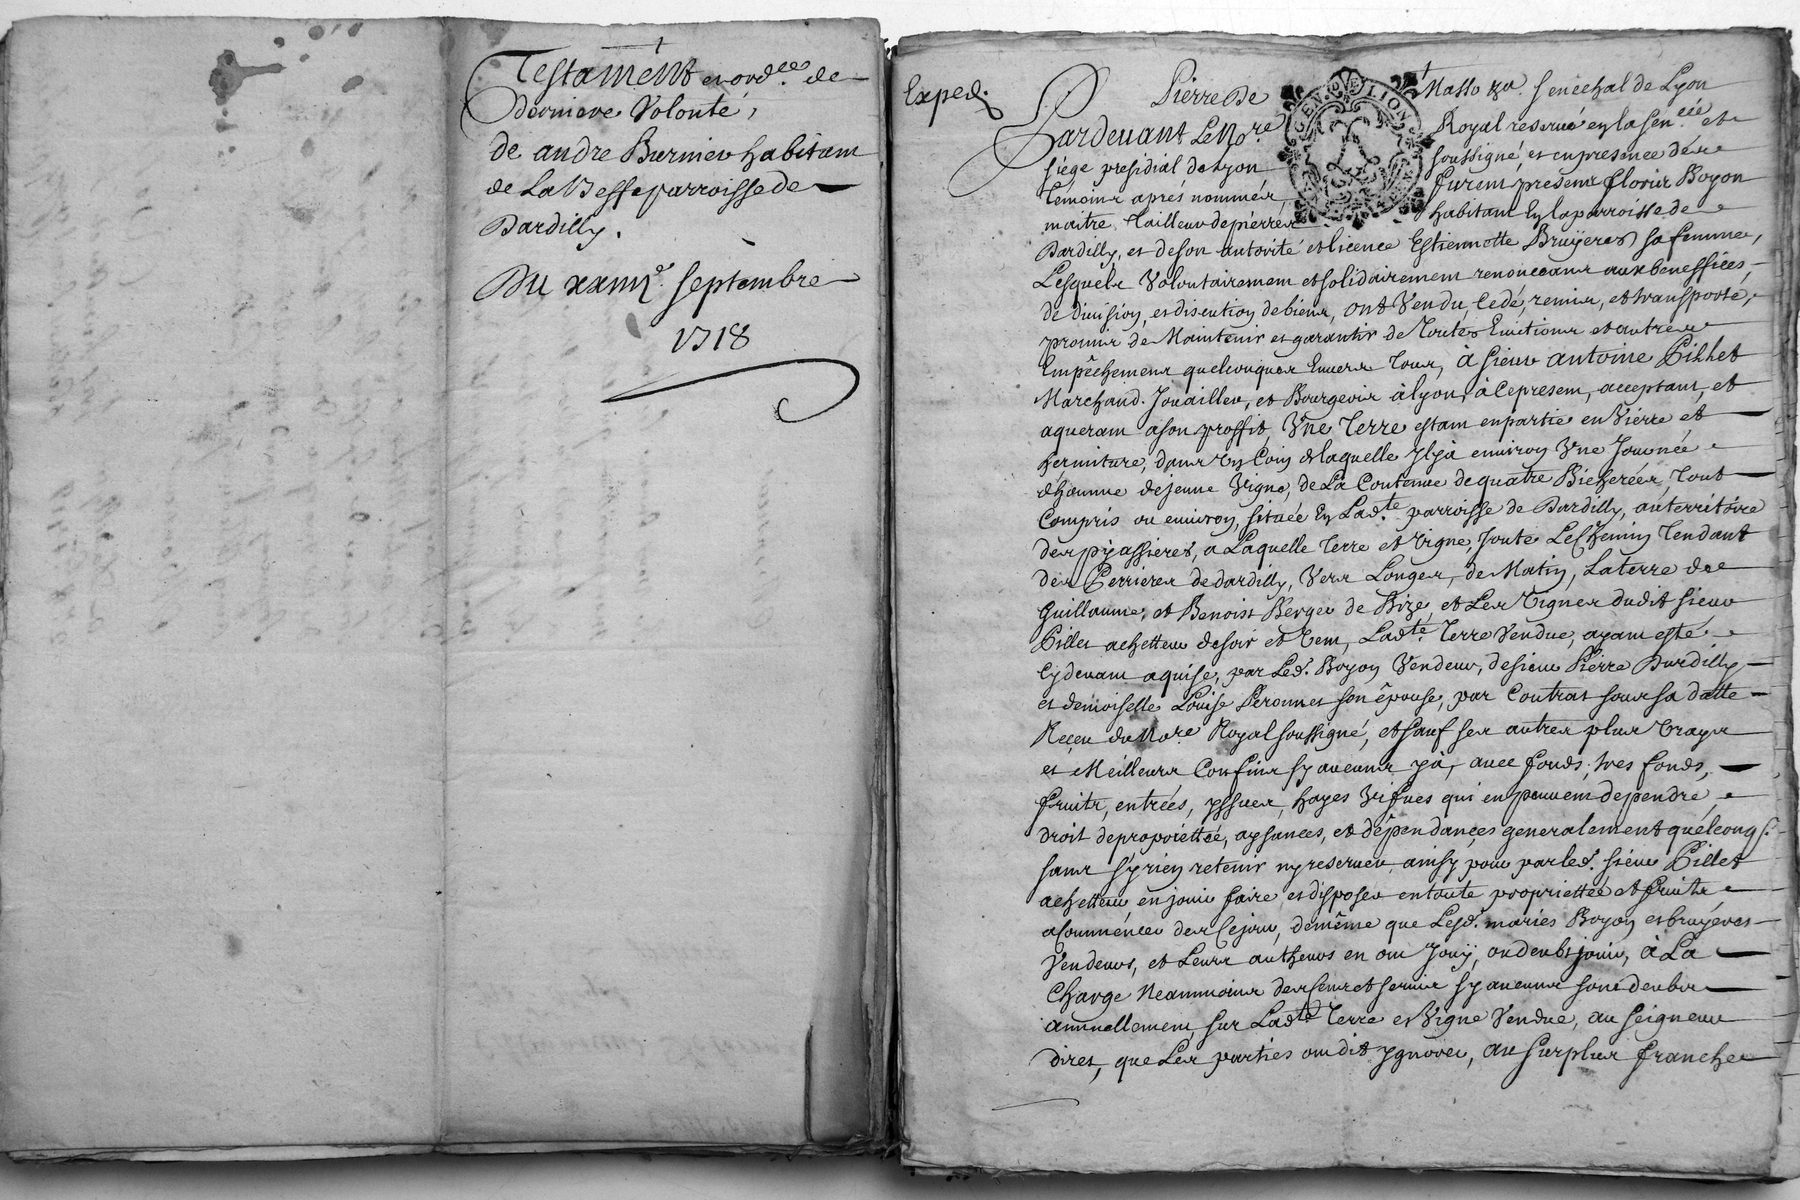 Testament et ord.ce de
derniere Volonté,
de andre Burnier habitant
de La Besse parroisse de
Dardilly.
Du septembre
1718
Exped.
Pierre De Masso Senechal de Lyon
Pardevant Le No.re Royal reservé en la Sen.cée et
siége presidial de Lyon soussigné, et en presence des
témoins aprés nommés, furent presens Floris Boyon
maitre Tailleur de pierres habitant En la parroisse de
Dardilly, et de son autorité et licence Estiennette Bruÿeres sa femme,
Lesquels Volontairement et solidairement renonceans aux beneffices,
de division, et discution de biens, ont Vendu, Cedé, remis, et transporté,
promis de Maintenir et garantir de Toutes Evictions et autres
Empêchemens quelconques Envers Tous, à sieur antoine Pillet
Marchand Jouaillier, et Bourgeois à Lyon, à Ce present, acceptant, et
aquerant a son proffit, Une Terre estant en partie en Pierre et
hermiture, dans Un Coin de laquelle il y à environ Une Journée
d'homme de jeune Vigne, de La Contenue de quatre Bicherées, Tout
Compris ou environ, située En Lad.te parroisse de Dardilly, au territoire
des a Laquelle Terre et Vigne, Joute Le Chemin Tendant
des Perrieres de dardilly, Vers Longes, de Matin, La terre de
Guillaume, et Benoist Berger de Bize, et Les Vignes dudit sieur
Pillet achetteur de soir et Vent, Lad.te Terre Vendue, ayant esté
Cydevant aquise, par Led. Boyon Vendeur, de sieur Pierre Dardilly
et demoiselle Louise Peronnet son épouse, par Contrat sous sa datte
Reçeu du No.re Royal soussigné, et sauf ses autres plus Vrays
et Meilleurs Confins sy aucuns y à, avec fonds, tres fonds,
fruits, entrées, yssues, hayes Vifves qui en peuvent dependre,
droit de propriettée, aysances, et dépendances generalement quélconq.s
sans sy rien retenir ny reserver, ainsy pour par led. sieur Pillet
achetteur en jouir faire, et disposer en toute propriettée et fruits
a Commencer des Cejour, de même que Lesd. mariés Boyon et bruyeres
Vendeurs, et Leurs autheurs en ont Jouÿ, ou deubt jouir, à La
Charge Neammoins des Cens et servis sy aucuns sont deubs
annuellement, sur Lad.te Terre et Vigne Vendue, au seigneur
diret, que Les parties ont dit ygnorer, au surplus franche